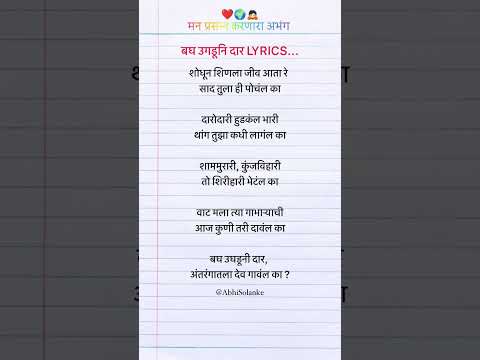 ❤️🌍🙇🏻
मन प्रसन्न करणारा अभंग
बघ उगडूनि दार LYRICS...
शोधून शिणला जीव आता रे
साद तुला ही पोचंल का
दारोदारी हुडकंल भारी
थांग तुझा कधी लागंल का
शाममुरारी, कुंजविहारी
तो शिरीहारी भेटंल का
वाट मला त्या गाभाऱ्याची
आज कुणी तरी दावंल का
बघ उघडूनी दार,
अंतरंगातला देव गावंल का ?
@AbhiSolanke